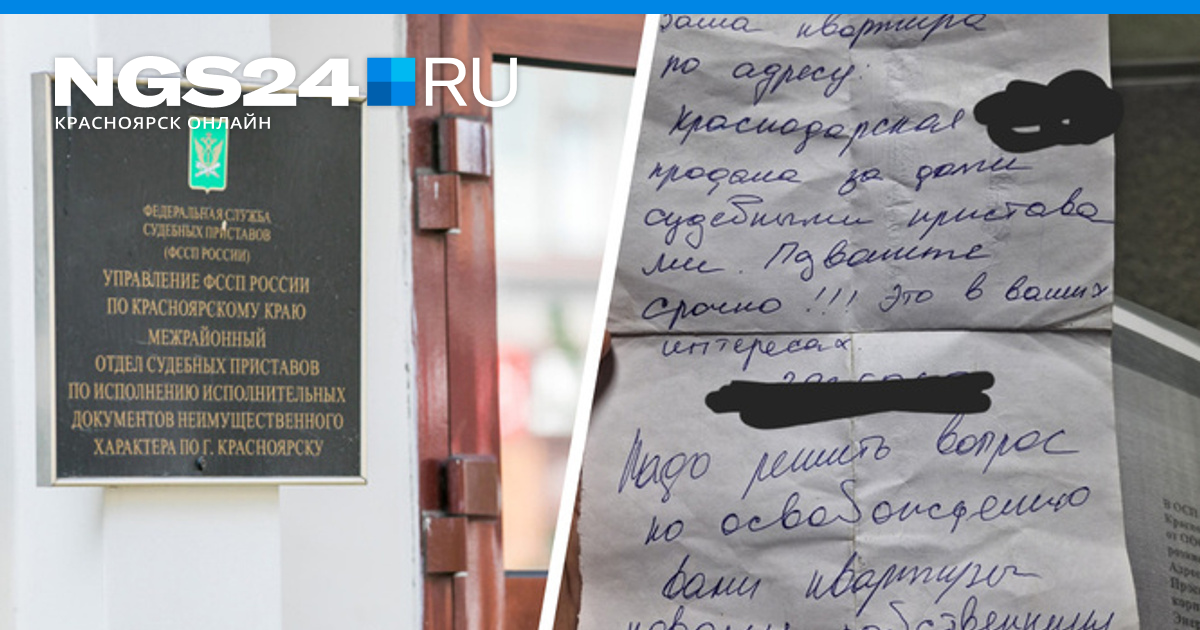 NGS24.RU
КРАСНОЯРСК ОНЛАЙН
ФЕДЕРАЛЬНАЯ СЛУЖБА
СУДЕБНЫХ ПРИСТАВОВ
(ФССП РОССИИ)
УПРАВЛЕНИЕ ФССП РОССИИ
ПО КРАСНОЯРСКОМУ КРАЮ
МЕЖРАЙОННЫЙ
ОТДЕЛ СУДЕБНЫХ ПРИСТАВОВ
ПО ИСПОЛНЕНИЮ ИСПОЛНИТЕЛЬНЫХ
ДОКУМЕНТОВ НЕИМУЩЕСТВЕННОГО
ХАРАКТЕРА ПО Г. КРАСНОЯРСКУ
Ваша квартира
по адресу:
Краснодарская
продана за долги
судебными пристава
ми. Позвоните
срочно!!! Это в ваших
интересах.
Надо решить вопрос
по освобождению
вами квартиры
В ОСП